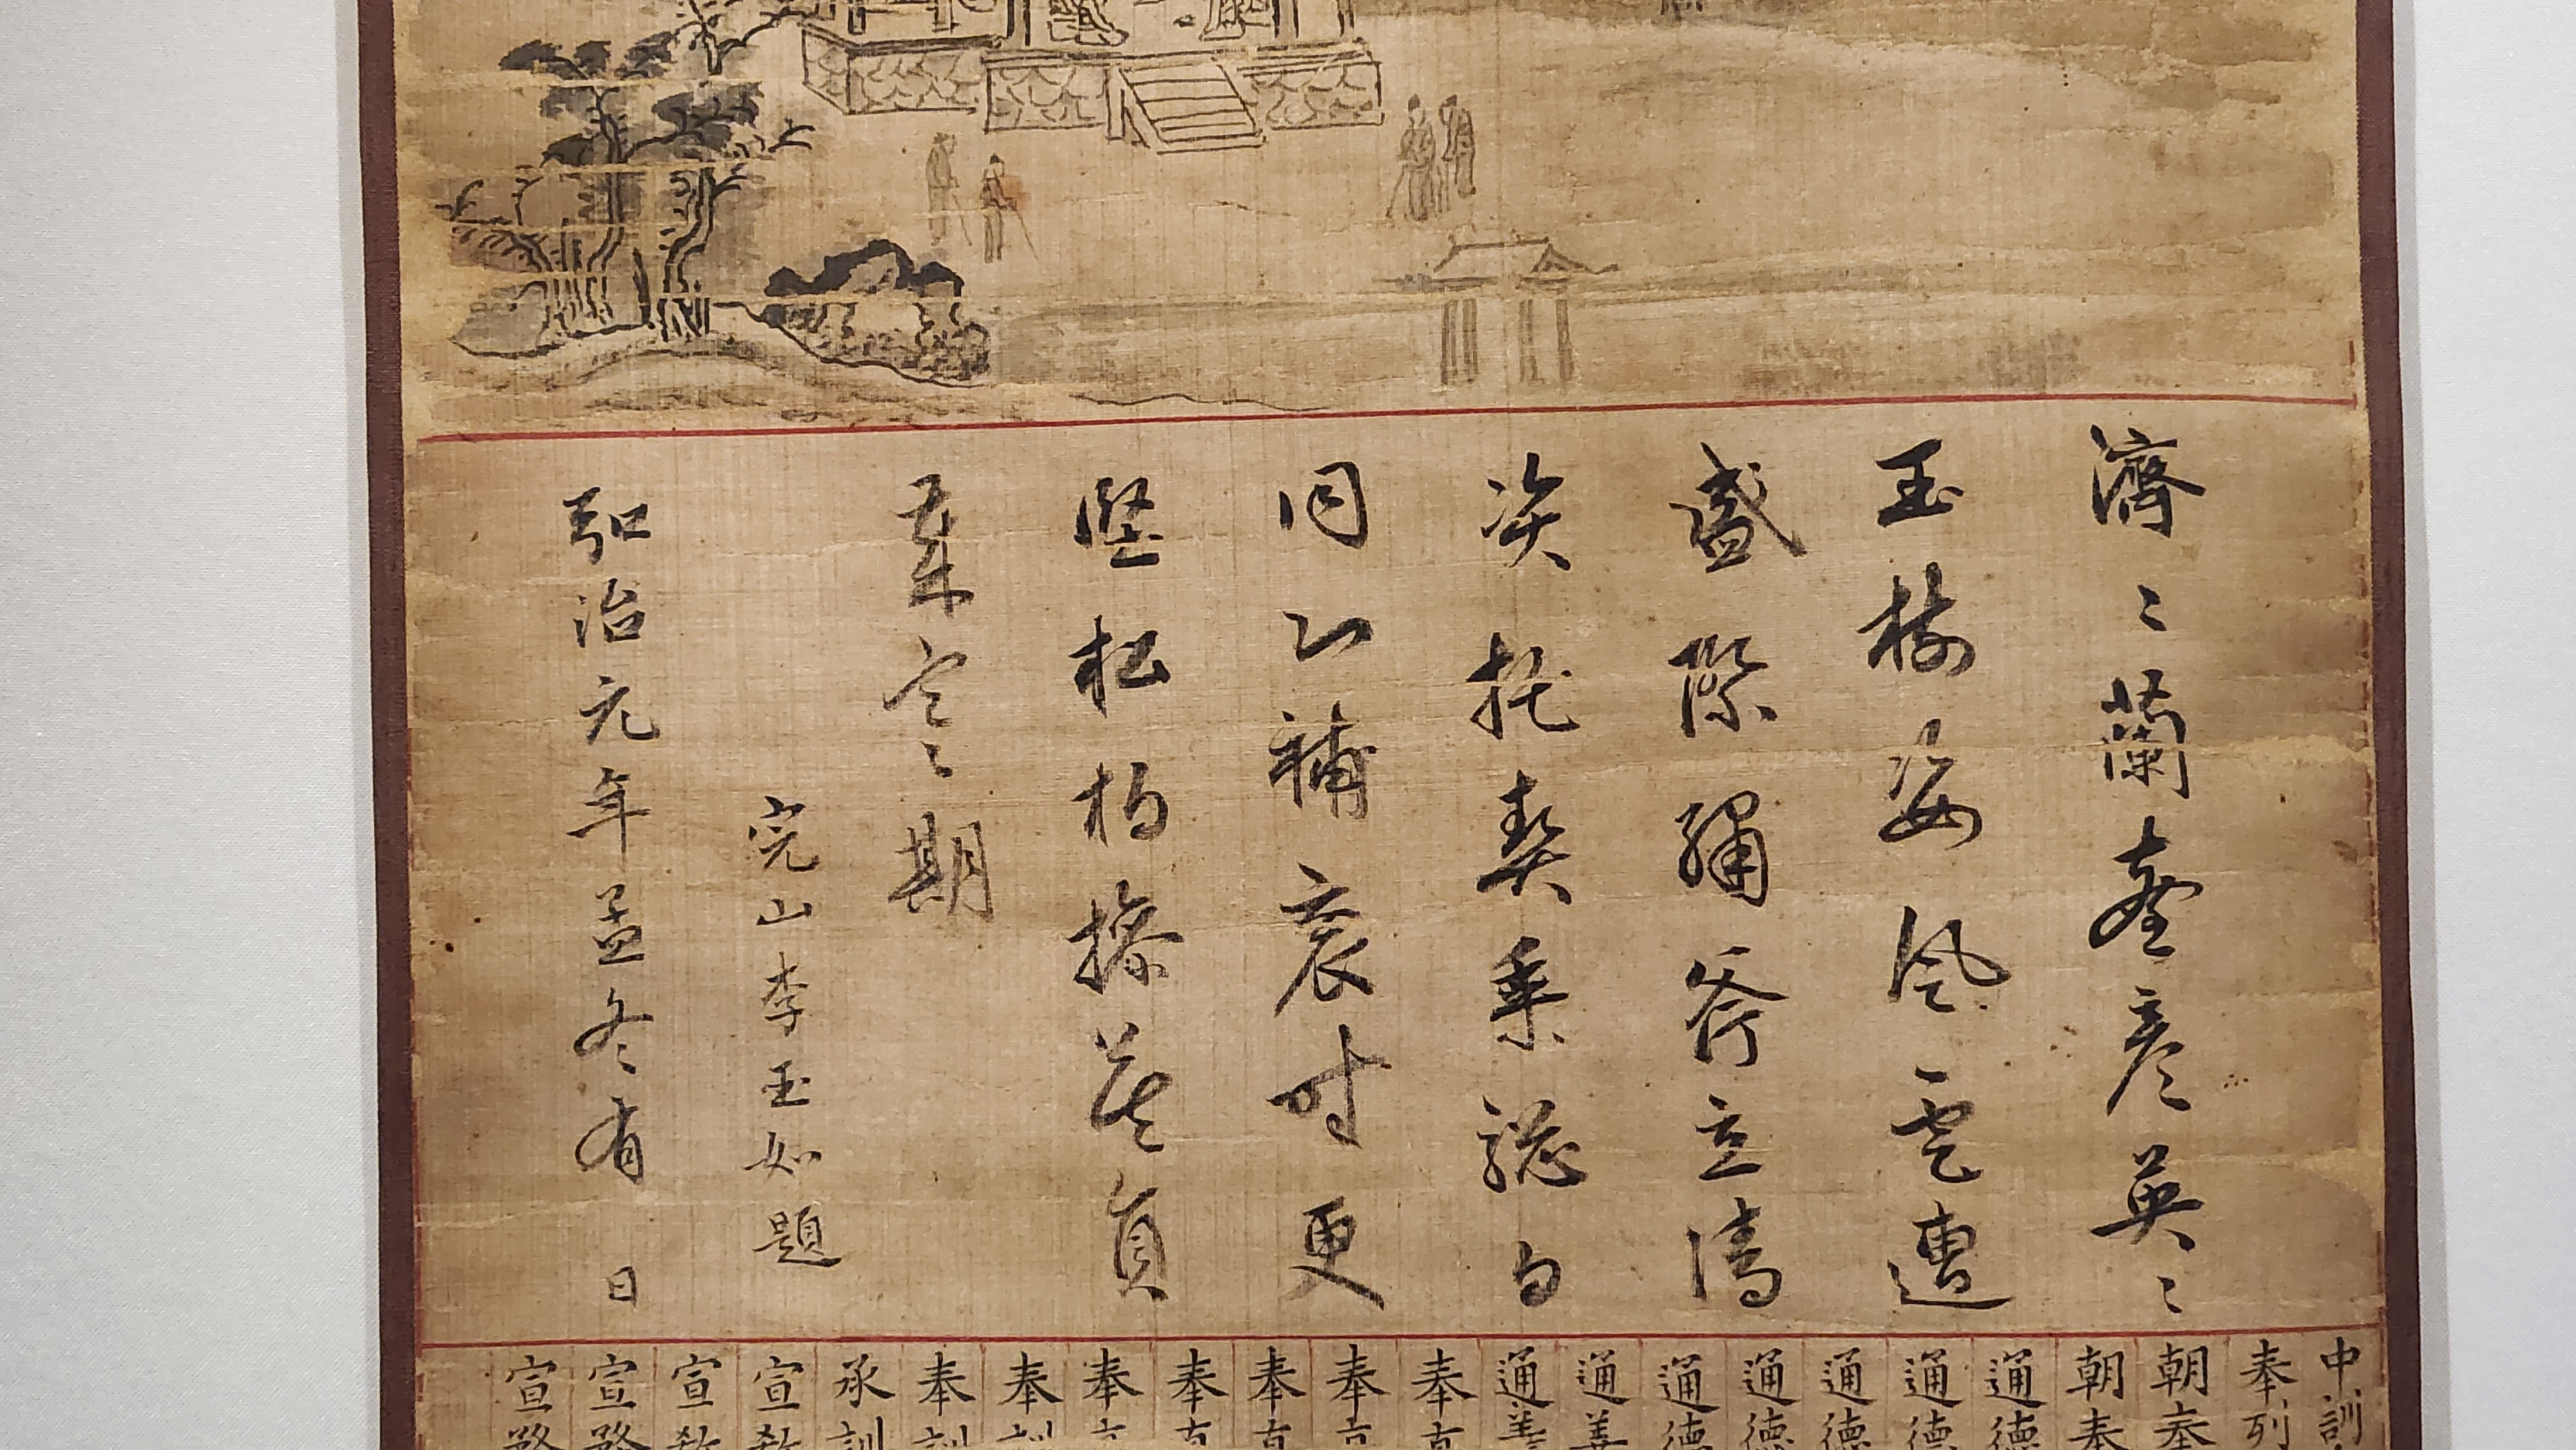 濟〻蘭臺彦英〻
玉樹姿風雲遭
盛際繡斧立清
資托契乘驄日
同心補袞時更
堅松柏操莫負
歲寒期
完山李玉如題
弘治元年孟冬有日
中訓
奉列
朝奉
朝奉
通德
通德
通德
通德
通德
通善
通善
奉直
奉直
奉直
奉直
奉直
奉訓
奉訓
承訓
宣教
宣教
宣務
宣務